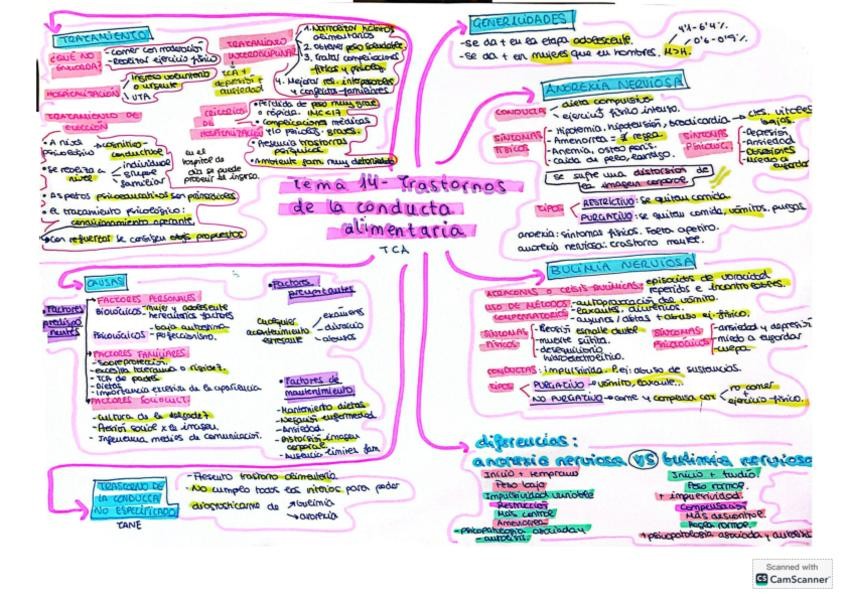 TRATAMIENTO
¿QUÉ NO ENGORDA?
- Comer con moderación
- Realizar ejercicio físico
HOSPITALIZACIÓN
Ingreso voluntario o urgente
UTA
TCA + depresión + ansiedad
TRATAMIENTO
1. Normalizar hábitos alimentarios
2. Obtener peso saludable
3. Tratar complicaciones físicas y psicolog.
4. Mejorar rel. interpersonales y conflictos familiares
TRATAMIENTO DE ELECCIÓN
• A nivel psicológico → cognitivo-conductual
• Se realiza a nivel
individual
grupal
familiar
en el hospital de día se puede prohibir el ingreso.
• Aspectos psicoeducativos son primordiales
• El tratamiento psicológico:
condicionamiento operante.
• Con refuerzos se consiguen objs propuestos
CRITERIOS DE HOSPITALIZACIÓN
• Pérdida de peso muy grave o rápida. IMC<17
• Complicaciones médicas y/o psicolo. graves.
• Presencia trastornos psíquicos
• Ambiente fam. muy deteriorado
GENERALIDADES
- Se da + en la etapa adolescente.
- Se da + en mujeres que en hombres. M>H.
ANOREXIA NERVIOSA
CONDUCTA
dieta compulsiva
ejercicio físico intenso.
SÍNTOMAS FÍSICOS
- Hipotermia, hipotensión, bradicardia → ctes. vitales bajas.
- Amenorrea = regla.
- Anemia, osteoporosis.
- Caída de pelo, lanugo.
SÍNTOMAS PSICOLÓG.
- Depresión
- Ansiedad
- Obsesiones
- Miedo a engordar
se sufre una distorsión de la imagen corporal
TIPOS
RESTRICTIVO: Se quitan comida
PURGATIVO: se quitan comida, vómitos, purgas
anorexia: síntomas físicos. Falta apetito.
anorexia nerviosa: trastorno mental.
Tema 14 - Trastornos
de la conducta
alimentaria
TCA
CAUSAS
Factores predisponentes
FACTORES PERSONALES
Biológicos: - mujer y adolescente
- hereditarios factores
Psicológicos - baja autoestima
- perfeccionismo.
FACTORES FAMILIARES
- Sobreprotección.
- excesiva tolerancia o rigidez.
- TCA de padres
- Dietas
- Importancia excesiva de la apariencia
FACTORES SOCIOCULT.
- Cultura de la delgadez
- Presión social x la imagen
- Influencia medios de comunicación.
Factores precipitantes
Cualquier acontecimiento estresante
exámenes
divorcio
Factores de mantenimiento
- Mantenimiento dietas
- Negación enfermedad
- Ansiedad.
- Distorsión imagen corporal
- Ausencia límites fam
BULIMIA NERVIOSA
ATRACONES O CRISIS BULÍMICAS: episodios de voracidad repetidos e incontrolables.
USO DE MÉTODOS COMPENSATORIOS
- autoprovocación del vómito.
- laxantes, diuréticos.
- ayunos / dietas + abuso ej. físico.
SÍNTOMAS FÍSICOS
- Erosión esmalte dental
- muerte súbita.
- desequilibrio hidroelectrolítico.
SÍNTOMAS PSICOLÓGICOS
- ansiedad y depresión
- miedo a engordar
- culpa.
CONDUCTAS: impulsividad. P.ej: abuso de sustancias.
TIPOS
PURGATIVO → vómito, laxante...
NO PURGATIVO → come y compensa con
no comer
ejercicio físico.
TRASTORNO DE LA CONDUCTA NO ESPECIFICADO
TANE
- Presenta trastorno alimentario
- No cumple todos los criterios para poder diagnosticarse de
bulimia
anorexia
diferencias:
anorexia nerviosa VS bulimia nerviosa
Inicio + temprano
Inicio + tardío
Peso bajo
Peso normal
Impulsividad variable
+ impulsividad
Restricción
Compensación
Más control
Más descontrol
Amenorrea
Regla normal
- psicopatología asociada y - autolisis
+ psicopatología asociada y autolisis
Scanned with
CS CamScanner